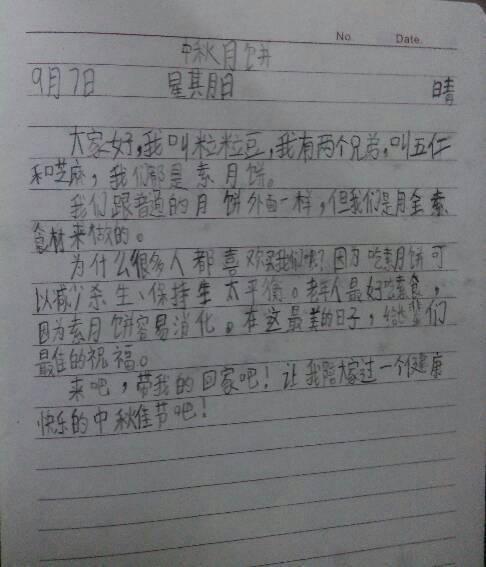 No. Date.
中秋月饼
9月7日 星其月日 晴
大家好,我叫粒粒豆,我有两个兄弟,叫五仁
和芝麻,我们都是素月饼。
我们跟普通的月饼外面一样,但我们是用全素
食材来做的。
为什么很多人都喜欢买我们呢?因为吃素月饼可
以减少杀生、保持生太平衡。老年人最好吃素食,
因为素月饼容易消化。在这最美的日子,给 们
最佳的祝福。
来吧,带我的回家吧!让我陪大家过一个健康
快乐的中秋佳节吧!